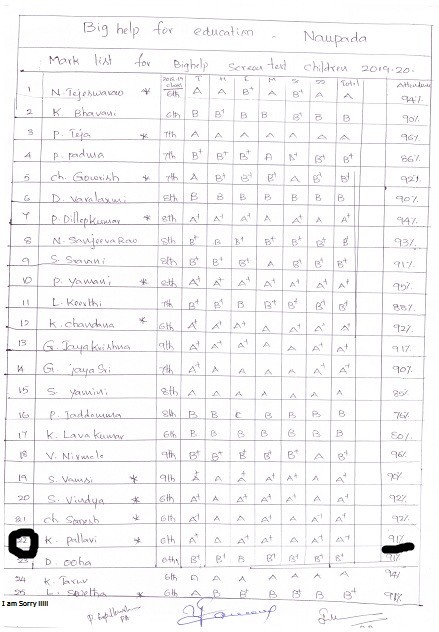 Big help for education - Naupada
Mark list for Bighelp Screen test children 2019-20.
2018-19 class T H E M S SS Total Attendance
1 N. Tejeswarao * 6th A A B+ A B+ A A 94%
2 K. Bhavani 6th B B+ B B B+ B B 90%
3 P. Teja * 7th A A A A A A A 96%
4 P. Padma 7th B+ B+ B+ A B+ B+ B+ 86%
5 Ch. Gowrish * 7th A B+ B+ B+ A B+ B+ 92%
6 D. Varalaxmi 8th B B B B B B B 90%
7 P. Dileepkumar * 8th A+ A+ A A A+ A A+ 94%
8 N. Sanjeeva Rao 8th B+ B B B+ B+ B+ B 93%
9 S. Sravani 8th B+ B+ B+ A B+ B+ B+ 91%
10 P. Yamani * 8th A+ A+ A+ A+ A+ A+ A+ 95%
11 L. Keerthi 7th B+ B+ B B+ B+ B+ B+ 88%
12 K. chandana * 6th A+ A+ A+ A A+ A+ A+ 92%
13 G. Jaya Krishna 9th A+ A+ A A A A+ A+ 91%
14 G. jaya Sri 7th A+ A A A A+ A+ A+ 90%
15 S. yamini 8th A A A A A A A 85%
16 P. Taddomma 8th B B C B B B B 76%
17 K. Lava kumar 6th B B B B B B B 80%
18 V. Nirmala 9th B+ B+ B+ B+ B+ A B+ 96%
19 S. Vamsi * 9th A+ A A A+ A+ A A+ 90%
20 S. Vindya * 6th A+ A A+ A A+ A+ A+ 92%
21 ch Sanesh * 6th A+ A A+ A+ A+ A+ A+ 92%
22 K. pallavi * 6th A+ A+ A A A+ A+ A+ 91%
23 D. ooha 6th B+ B+ B B+ B+ B+ B+ 91%
24 K. Tarun 6th A A A A A A A 94%
25 L. * 6th A B+ B+ B+ B+ B+ B+ 91%
I am Sorry !!!!!